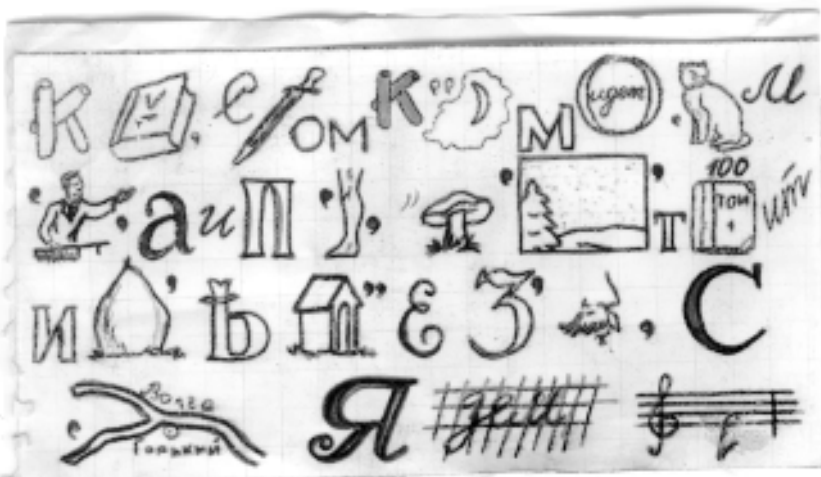 К , е ом К ,, м О идет , м
, , а и п , , ,, , , т 100 ТОМ 1 ит
И , Ь ,, Е З , , С
, Волга Горький Я дем